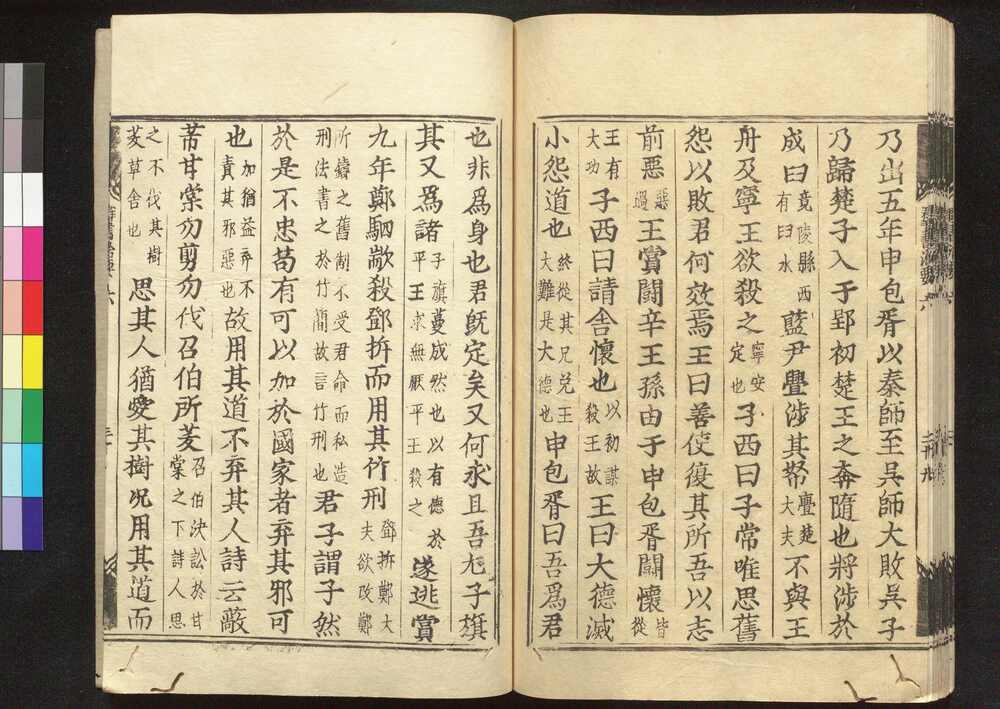 乃出五年申包胥以秦師至吳師大敗吳子
乃歸楚子入于郢初楚王之奔隨也將涉於
成曰竟陵縣西有曰水藍尹亹涉其帑亹楚大夫不與王
舟及寧王欲殺之寧安定也子西曰子常唯思舊
怨以敗君何效焉王曰善使復其所吾以志
前惡惡過王賞鬬辛王孫由于申包胥鬬懷皆從
王有大功子西曰請舍懷也以初謀殺王故王曰大德滅
小怨道也終從其兄免王大難是大德也申包胥曰吾爲君
也非爲身也君旣定矣又何求且吾尤子旗
其又爲諸子旗蔓成然也以有德於平王求無厭平王殺之遂逃賞
九年鄭駟歂殺鄧析而用其竹刑鄧析鄭大夫欲改鄭
所鑄之舊制不受君命而私造刑法書之於竹簡故言竹刑也君子謂子然
於是不忠苟有可以加於國家者弃其邪可
也加猶益弃不責其邪惡也故用其道不弃其人詩云蔽
芾甘棠勿剪勿伐召伯所茇召伯決訟於甘棠之下詩人思
之不伐其樹茇草舍也思其人猶愛其樹況用其道而
群書治要六
三十九